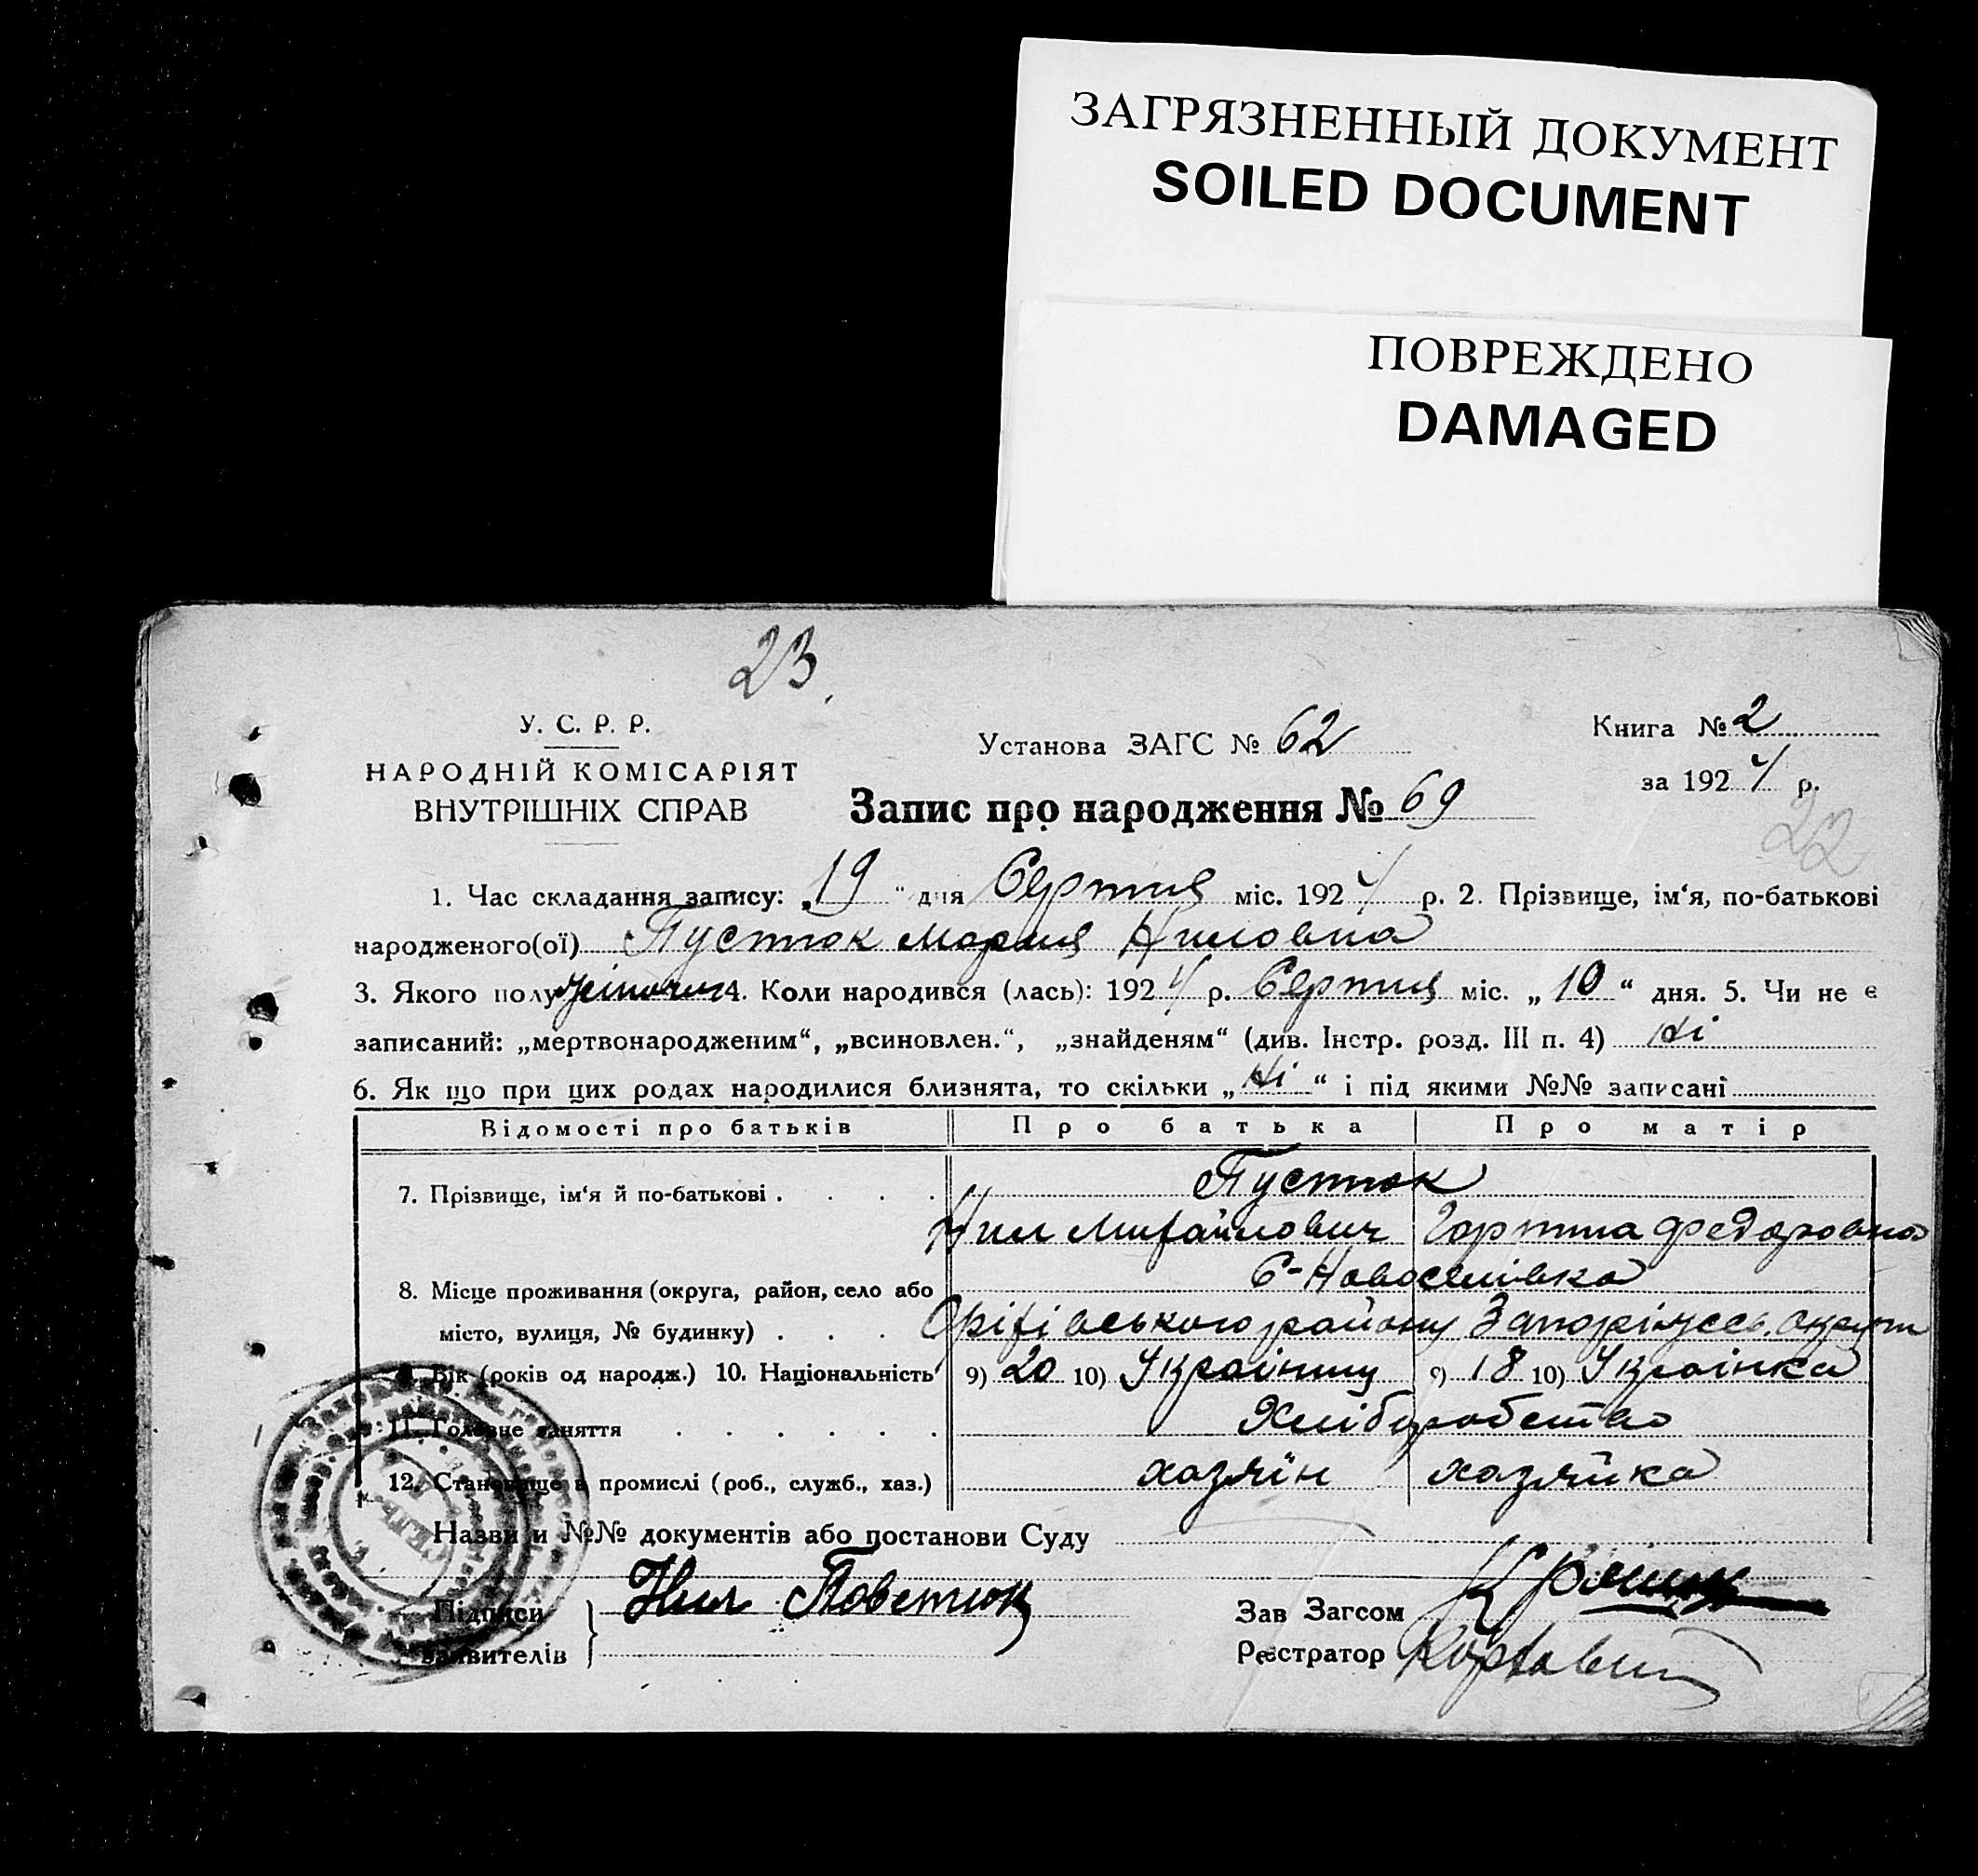 ЗАГРЯЗНЕННЫЙ ДОКУМЕНТ
SOILED DOCUMENT
ПОВРЕЖДЕНО
DAMAGED
23.
У. С. Р. Р.
НАРОДНІЙ КОМІСАРІЯТ
ВНУТРІШНІХ СПРАВ
Установа ЗАГС № 62
Книга № 2
за 1924 р.
Запис про народження № 69
22
1. Час складання запису: „19" дня Серпня міс. 1924 р. 2. Прізвище, ім‘я, по-батькові
народженого(ої) Пустюк Мария Ниловна
3. Якого полу 4. Коли народився (лась): 1924 р. Серпня міс. „10“ дня. 5. Чи не є
записаний: „мертвонародженим“, „всиновлен.“, „знайденям“ (див. Інстр. розд. III п. 4) Ні
6. Як що при цих родах народилися близнята, то скільки „Ні“ і під якими №№ записані
Відомості про батьків Про батька Про матір
7. Прізвище, ім‘я й по-батькові . . . . Пустюк
Нил Михайлович Горпина Федоровна
8. Місце проживання (округа, район, село або С-Новоселівка
місто, вулиця, № будинку) . . . Оріхівського району Запоріжсь. округи
9. Вік (років од народж.) 10. Національність 9) 20 10) Українец 9) 18 10) Українка
11. Головне заняття . . . . . . Хліборобство
12. Становище в промислі (роб., служб., хаз.) хазяїн хазяйка
Назви и №№ документів або постанови Суду
Підписи
заявителів } Нил Повстюк
Зав Загсом
Реєстратор